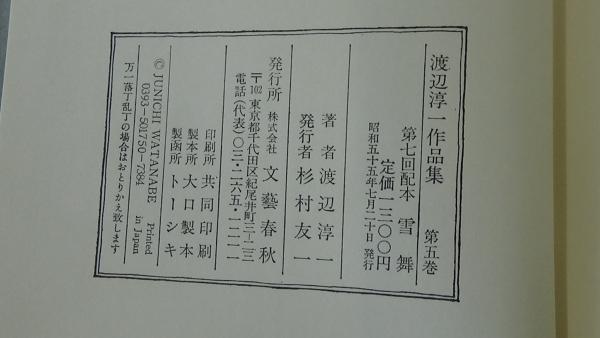 渡辺淳一作品集 第五巻
第七回配本 雪舞
定価一三〇〇円
昭和五十五年七月二十日 発行
著者 渡辺淳一
発行者 杉村友一
発行所 株式会社 文藝春秋
〒102 東京都千代田区紀尾井町三―二三
電話(代表)〇三・二六五・一二一一
印刷所 共同印刷
製本所 大口製本
製函所 トーシキ
© JUNICHI WATANABE Printed in Japan
0393-501750-7384
万一落丁乱丁の場合はおとりかえ致します